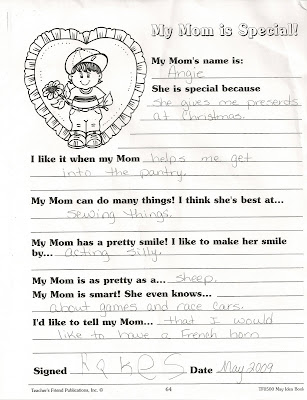 My Mom is Special!
My Mom's name is:
Angie
She is special because
she gives me presents
at Christmas.
I like it when my Mom helps me get
into the pantry.
My Mom can do many things! I think she's best at...
sewing things.
My Mom has a pretty smile! I like to make her smile
by... acting silly.
My Mom is as pretty as a... sheep.
My Mom is smart! She even knows...
about games and race cars.
I'd like to tell my Mom... that I would
like to have a French horn
Signed Rakes Date May 2009
Teacher's Friend Publications, Inc. ©
64
TF0500 May Idea Book